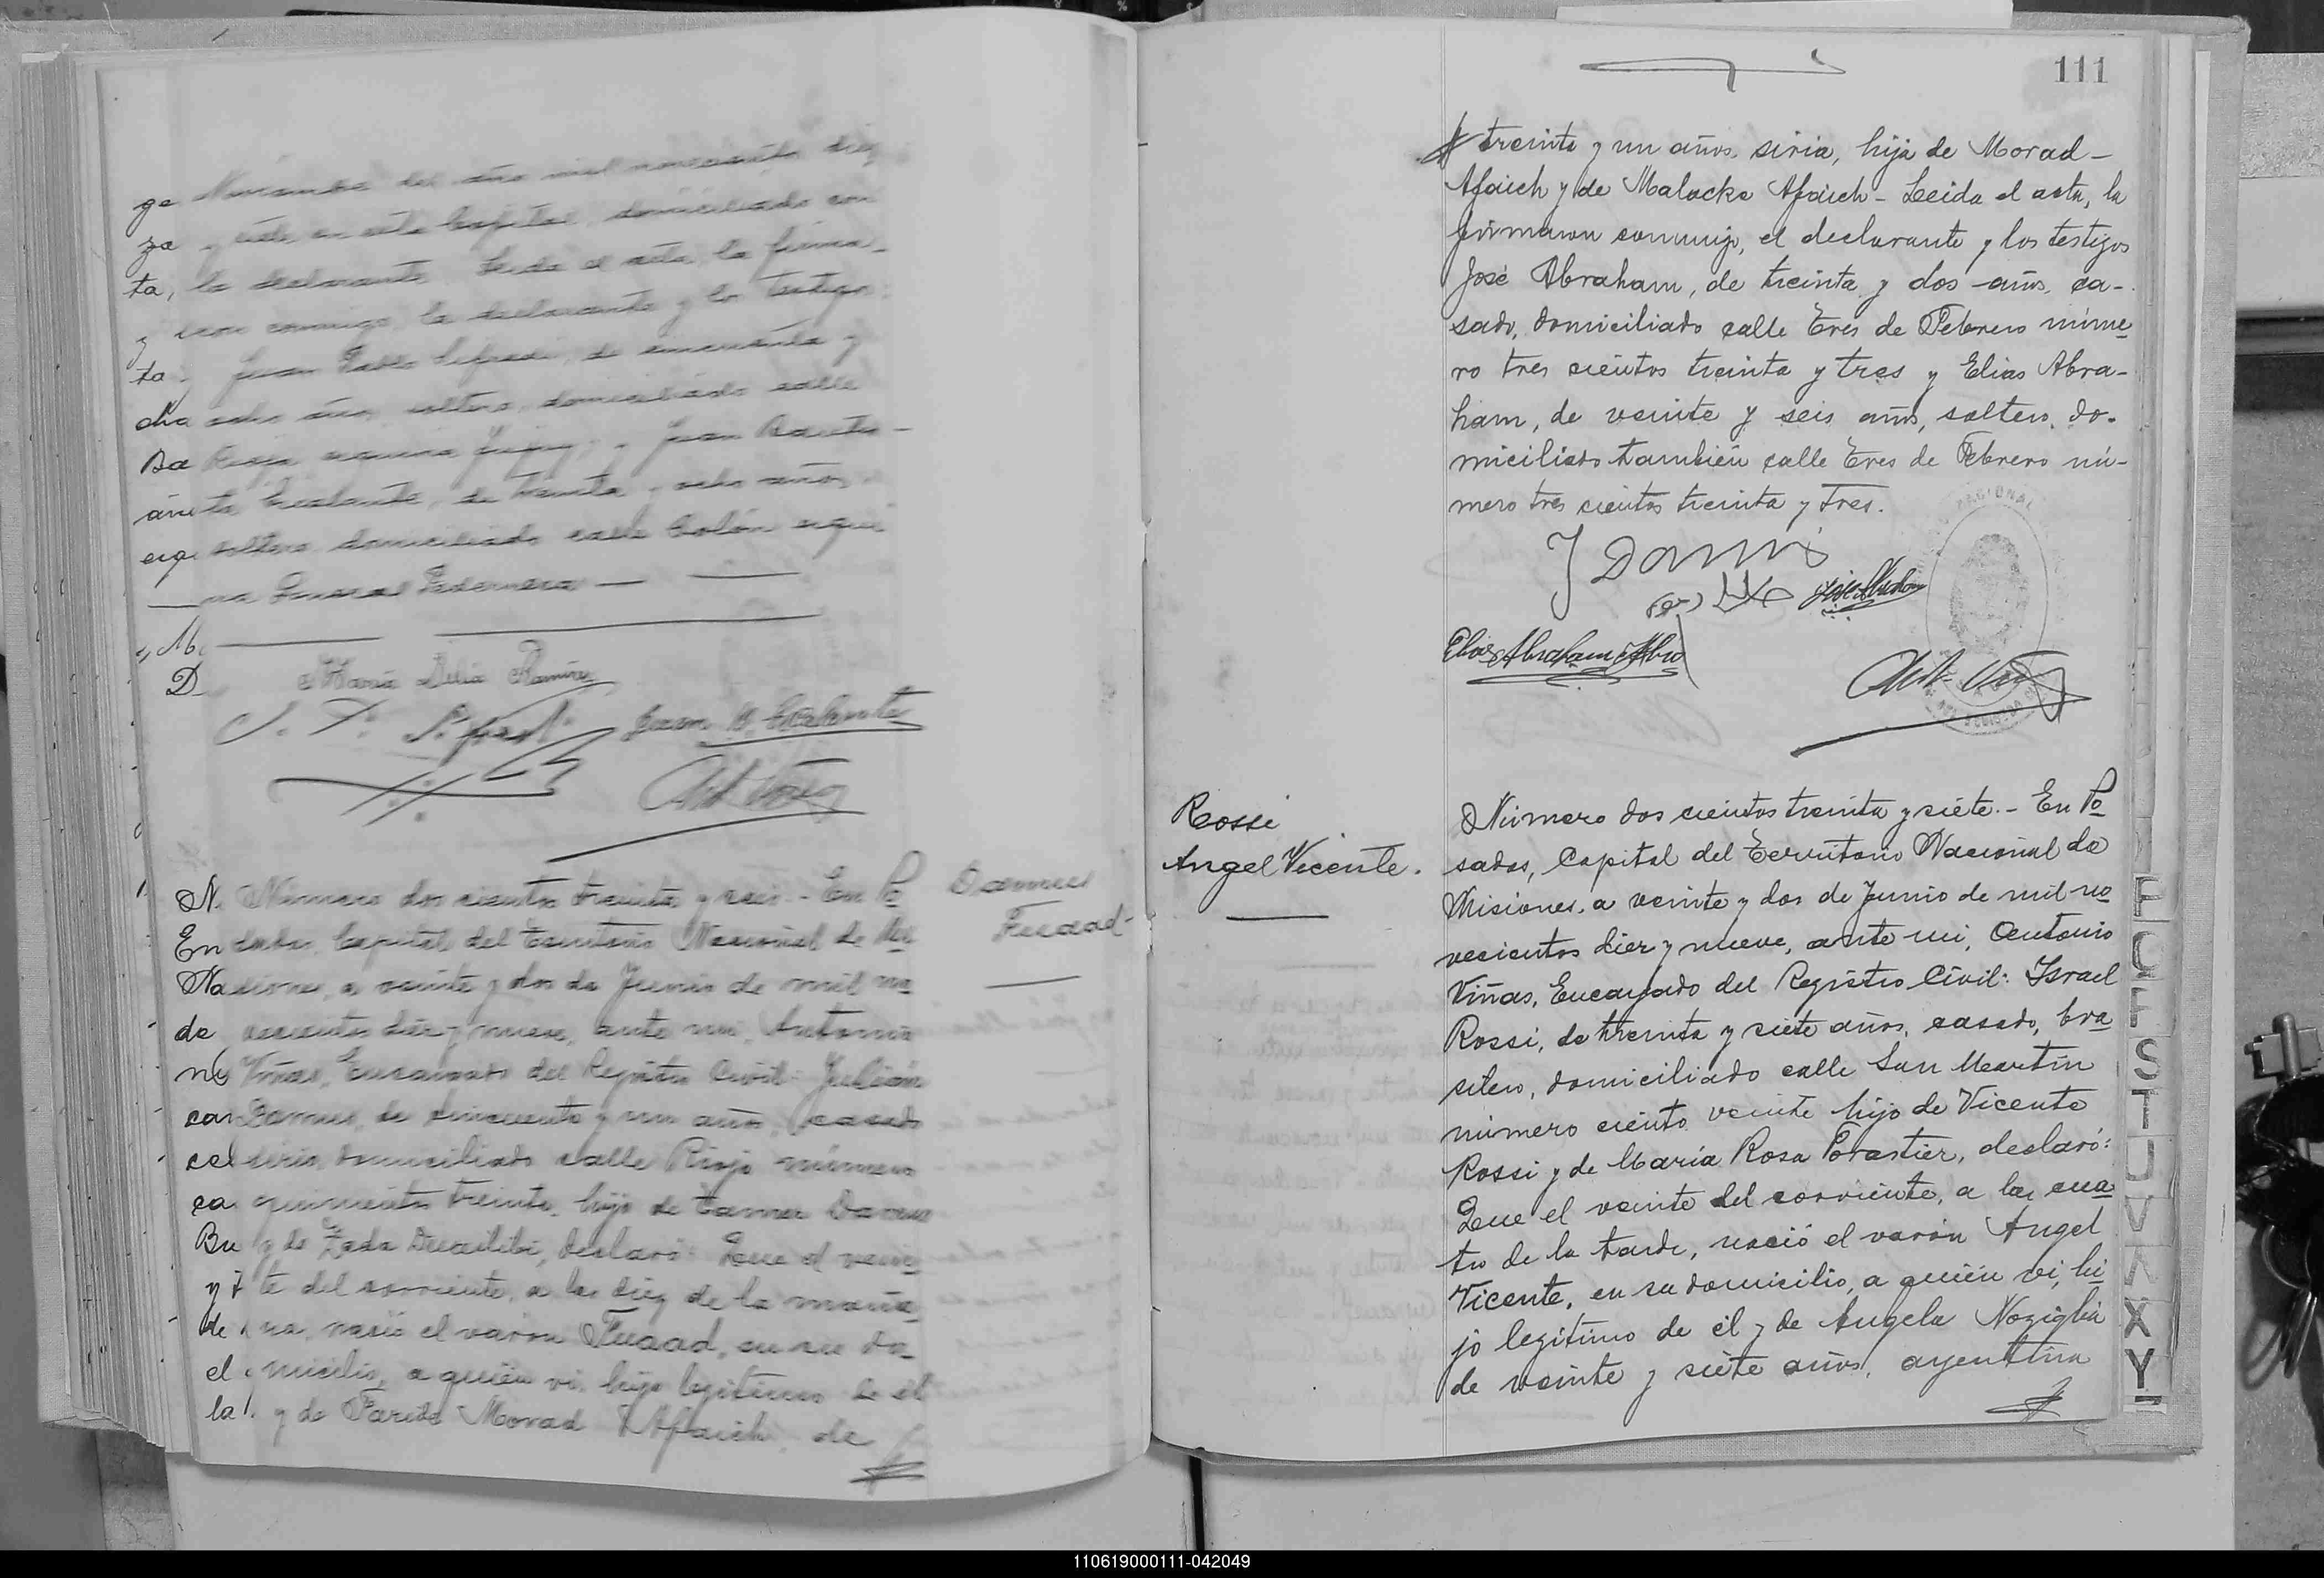 Noviembre del año mil novecientos diez
y siete, en esta Capital, domiciliado con
la declarante. Leida el acta, la firma-
ron conmigo, la declarante y los testigos
Juan Pablo de cincuenta y
ocho años, soltero, domiciliado calle
Rioja esquina Jujuy, y Juan Bautis-
ta Escalante, de treinta y ocho años,
soltero domiciliado calle Colón esqui-
na General Pedernera —
María Delia Ramírez
Juan B. Escalante
Ant Viñas
Damus
Fuaad
Número dos cientos treinta y seis.- En Po
sadas, Capital del Territorio Nacional de Mi
siones, a veinte y dos de Junio de mil no
vecientos diez y nueve, ante mi, Antonio
Viñas, Encargado del Registro Civil: Julián
Damus, de cincuenta y un años, casado
sirio, domiciliado calle Rioja número
quinientos treinta, hijo de Tamer Damus
y de Zada declaró: Que el vein
te del corriente, a las diez de la maña
na, nació el varón Fuaad, en su do
micilio, a quién vi, hijo legítimo de él
y de Faride Morad Afaich, de
111
treinta y un años, siria, hija de Morad-
Afaich y de Malacke Afaich- Leida el acta, la
firmaron conmigo, el declarante y los testigos
José Abraham, de treinta y dos años, ca-
sado, domiciliado calle Tres de Febrero núme
ro tres cientos treinta y tres y Elias Abra-
ham, de veinte y seis años, soltero, do-
miciliado también calle Tres de Febrero nú-
mero tres cientos treinta y tres.
J Damus
José Abraham
Elias Abraham
Ant Viñas
Rossi
Angel Vicente.
Número dos cientos treinta y siete.- En Po
sadas, Capital del Territorio Nacional de
Misiones, a veinte y dos de Junio de mil no
vecientos diez y nueve, ante mi, Antonio
Viñas, Encargado del Registro Civil: Israel
Rossi, de treinta y siete años, casado, bra
silero, domiciliado calle San Martín
número ciento veinte hijo de Vicente
Rossi y de María Rosa Forastier, declaró:
Que el veinte del corriente, a las cua
tro de la tarde, nació el varón Angel
Vicente, en su domicilio, a quién vi, hi
jo legítimo de él y de Angela Noziglia
de veinte y siete años, argentina
S
T
U
V
X
Y
110619000111-042049